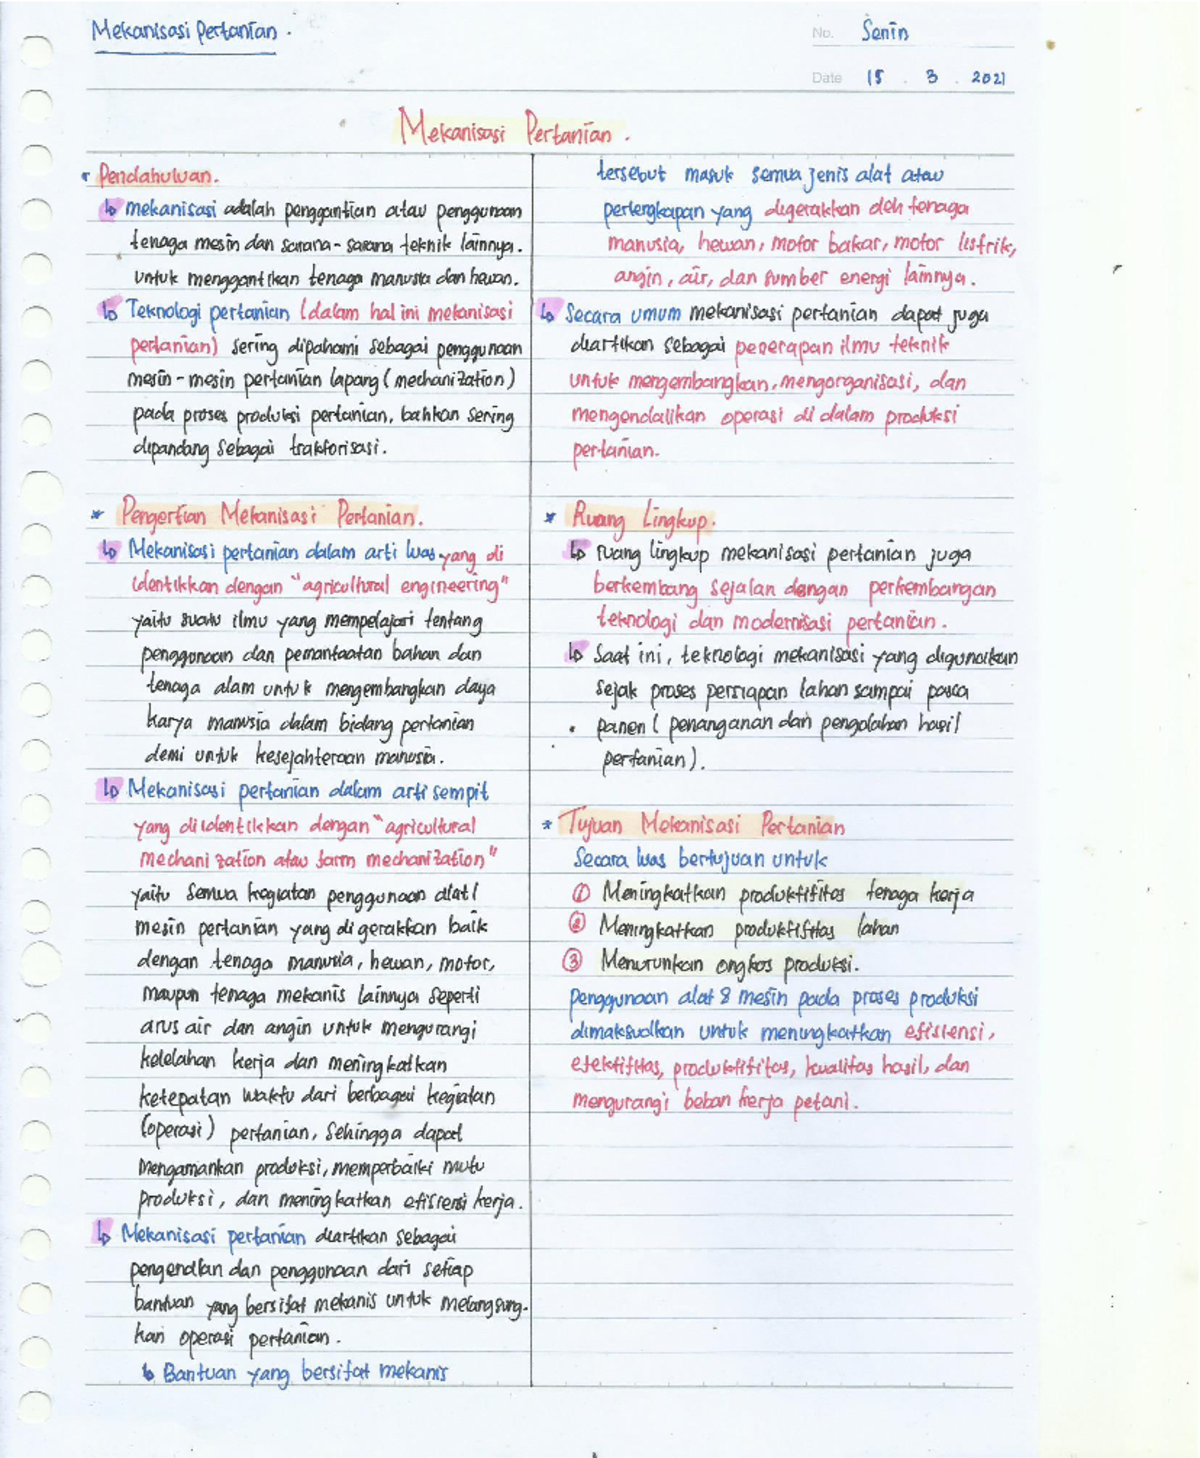 Mekanisasi Pertanian.
No. Senin
Date 15 . 3 . 2021
Mekanisasi Pertanian.
• Pendahuluan.
↳ mekanisasi adalah penggantian atau penggunaan
tenaga mesin dan sarana-sarana teknik lainnya.
untuk menggantikan tenaga manusia dan hewan.
↳ Teknologi pertanian (dalam hal ini mekanisasi
pertanian) sering dipahami sebagai penggunaan
mesin-mesin pertanian lapang (mechanization)
pada proses produksi pertanian, bahkan sering
dipandang sebagai traktorisasi.
* Pengertian Mekanisasi Pertanian.
↳ Mekanisasi pertanian dalam arti luas yang di
identikkan dengan "agricultural engineering"
yaitu suatu ilmu yang mempelajari tentang
penggunaan dan pemanfaatan bahan dan
tenaga alam untuk mengembangkan daya
karya manusia dalam bidang pertanian
demi untuk kesejahteraan manusia.
↳ Mekanisasi pertanian dalam arti sempit
yang diidentikkan dengan "agricultural
mechanization atau farm mechanization"
yaitu semua kegiatan penggunaan alat/
mesin pertanian yang digerakkan baik
dengan tenaga manusia, hewan, motor,
maupun tenaga mekanis lainnya seperti
arus air dan angin untuk mengurangi
kelelahan kerja dan meningkatkan
ketepatan waktu dari berbagai kegiatan
(operasi) pertanian, sehingga dapat
mengamankan produksi, memperbaiki mutu
produksi, dan meningkatkan efisiensi kerja.
↳ Mekanisasi pertanian diartikan sebagai
pengenalan dan penggunaan dari setiap
bantuan yang bersifat mekanis untuk melangsung-
kan operasi pertanian.
↳ Bantuan yang bersifat mekanis
tersebut masuk semua jenis alat atau
perlengkapan yang digerakkan oleh tenaga
manusia, hewan, motor bakar, motor listrik,
angin, air, dan sumber energi lainnya.
↳ Secara umum mekanisasi pertanian dapat juga
diartikan sebagai penerapan ilmu teknik
untuk mengembangkan, mengorganisasi, dan
mengendalikan operasi di dalam produksi
pertanian.
* Ruang Lingkup.
↳ ruang lingkup mekanisasi pertanian juga
berkembang sejalan dengan perkembangan
teknologi dan modernisasi pertanian.
↳ Saat ini, teknologi mekanisasi yang digunakan
sejak proses persiapan lahan sampai pasca
panen (penanganan dan pengolahan hasil
pertanian).
* Tujuan Mekanisasi Pertanian
Secara luas bertujuan untuk
① Meningkatkan produktifitas tenaga kerja
② Meningkatkan produktifitas lahan
③ Menurunkan ongkos produksi.
penggunaan alat & mesin pada proses produksi
dimaksudkan untuk meningkatkan efisiensi,
efektifitas, produktifitas, kualitas hasil, dan
mengurangi beban kerja petani.